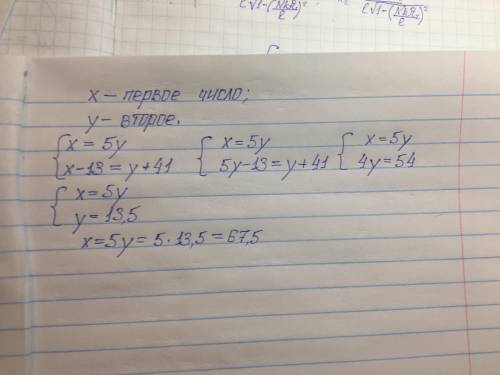 x – первое число;
y – второе.
{ x = 5y { x = 5y { x = 5y
x-13 = y+41 5y-13 = y+41 4y = 54
{ x = 5y
y = 13,5
x = 5y = 5 · 13,5 = 67,5